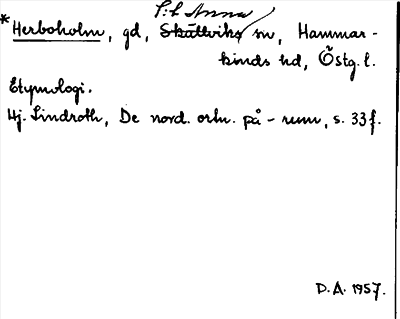 S:t Anna
*Herboholm, gd, Skällviks sn, Hammar-
kinds hd, Östg. l.
Etymologi.
Hj. Lindroth, De nord. ortn. på -rum, s. 33 f.
D.A. 1957.